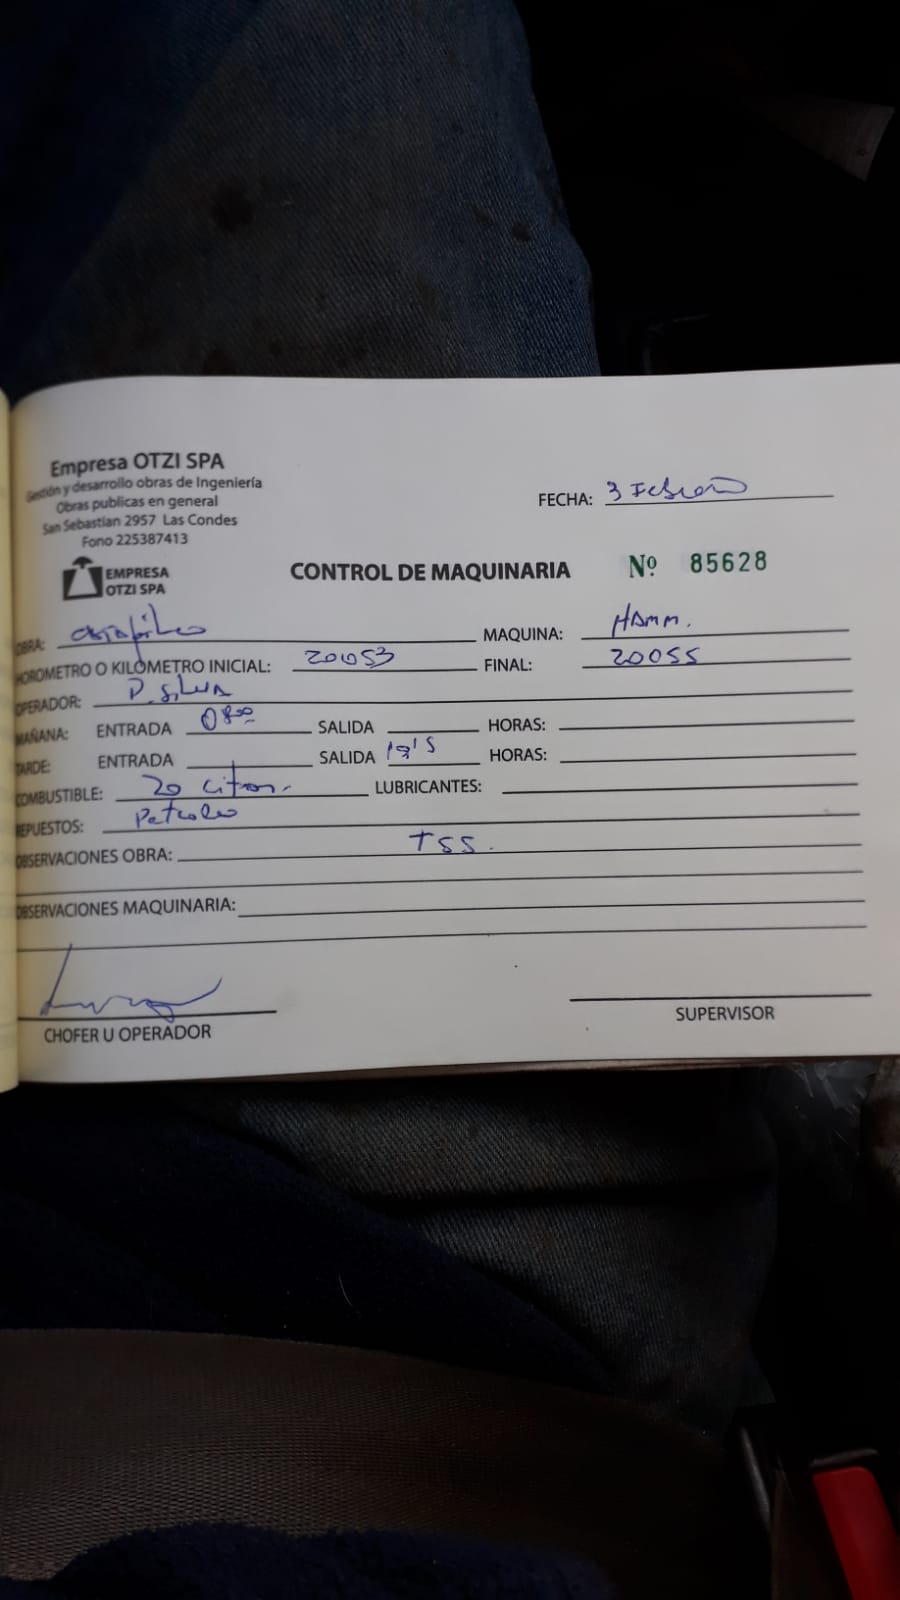 Empresa OTZI SPA
Gestión y desarrollo obras de Ingeniería
Obras publicas en general
San Sebastian 2957 Las Condes
Fono 225387413
EMPRESA
OTZI SPA
FECHA: 3 Febrero
CONTROL DE MAQUINARIA Nº 85628
OBRA: MAQUINA: HAMM.
HOROMETRO O KILOMETRO INICIAL: 20053 FINAL: 20055
OPERADOR: P. SILVA
MAÑANA: ENTRADA 0800 SALIDA HORAS:
TARDE: ENTRADA SALIDA HORAS:
COMBUSTIBLE: 20 LUBRICANTES:
REPUESTOS: Petroleo
OBSERVACIONES OBRA: TSS.
OBSERVACIONES MAQUINARIA:
CHOFER U OPERADOR
SUPERVISOR